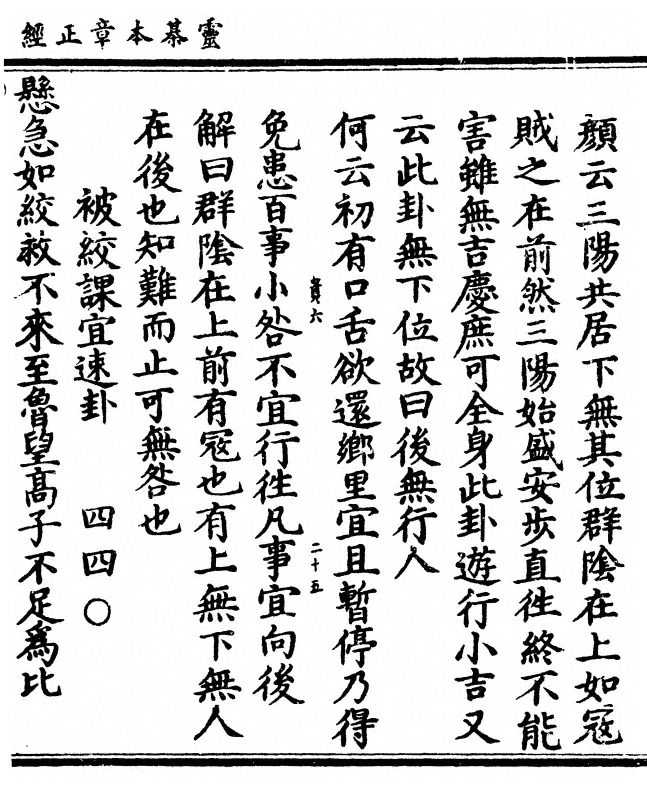 靈棊本章正經
顏云三陽共居下無其位群陰在上如寇
賊之在前然三陽始盛安步直徃終不能
害雖無吉慶庶可全身此卦遊行小吉又
云此卦無下位故曰後無行人
何云初有口舌欲還鄉里宜且暫停乃得
免患百事小咎不宜行徃凡事宜向後
二十五
解曰群陰在上前有寇也有上無下無人
在後也知難而止可無咎也
被絞課宜速卦 四四〇
懸急如絞救不來至魯望高子不足爲比